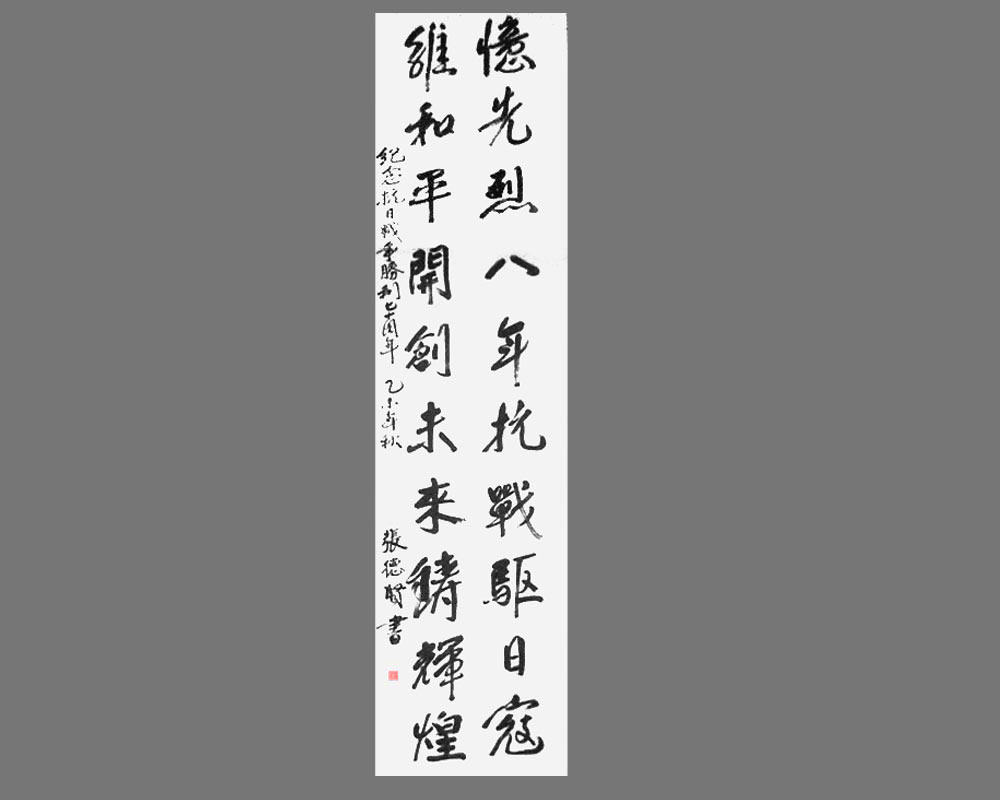 憶先烈八年抗戰驅日寇
維和平開創未來鑄輝煌
紀念抗日战争勝利七十周年 乙未年秋 張德賢書